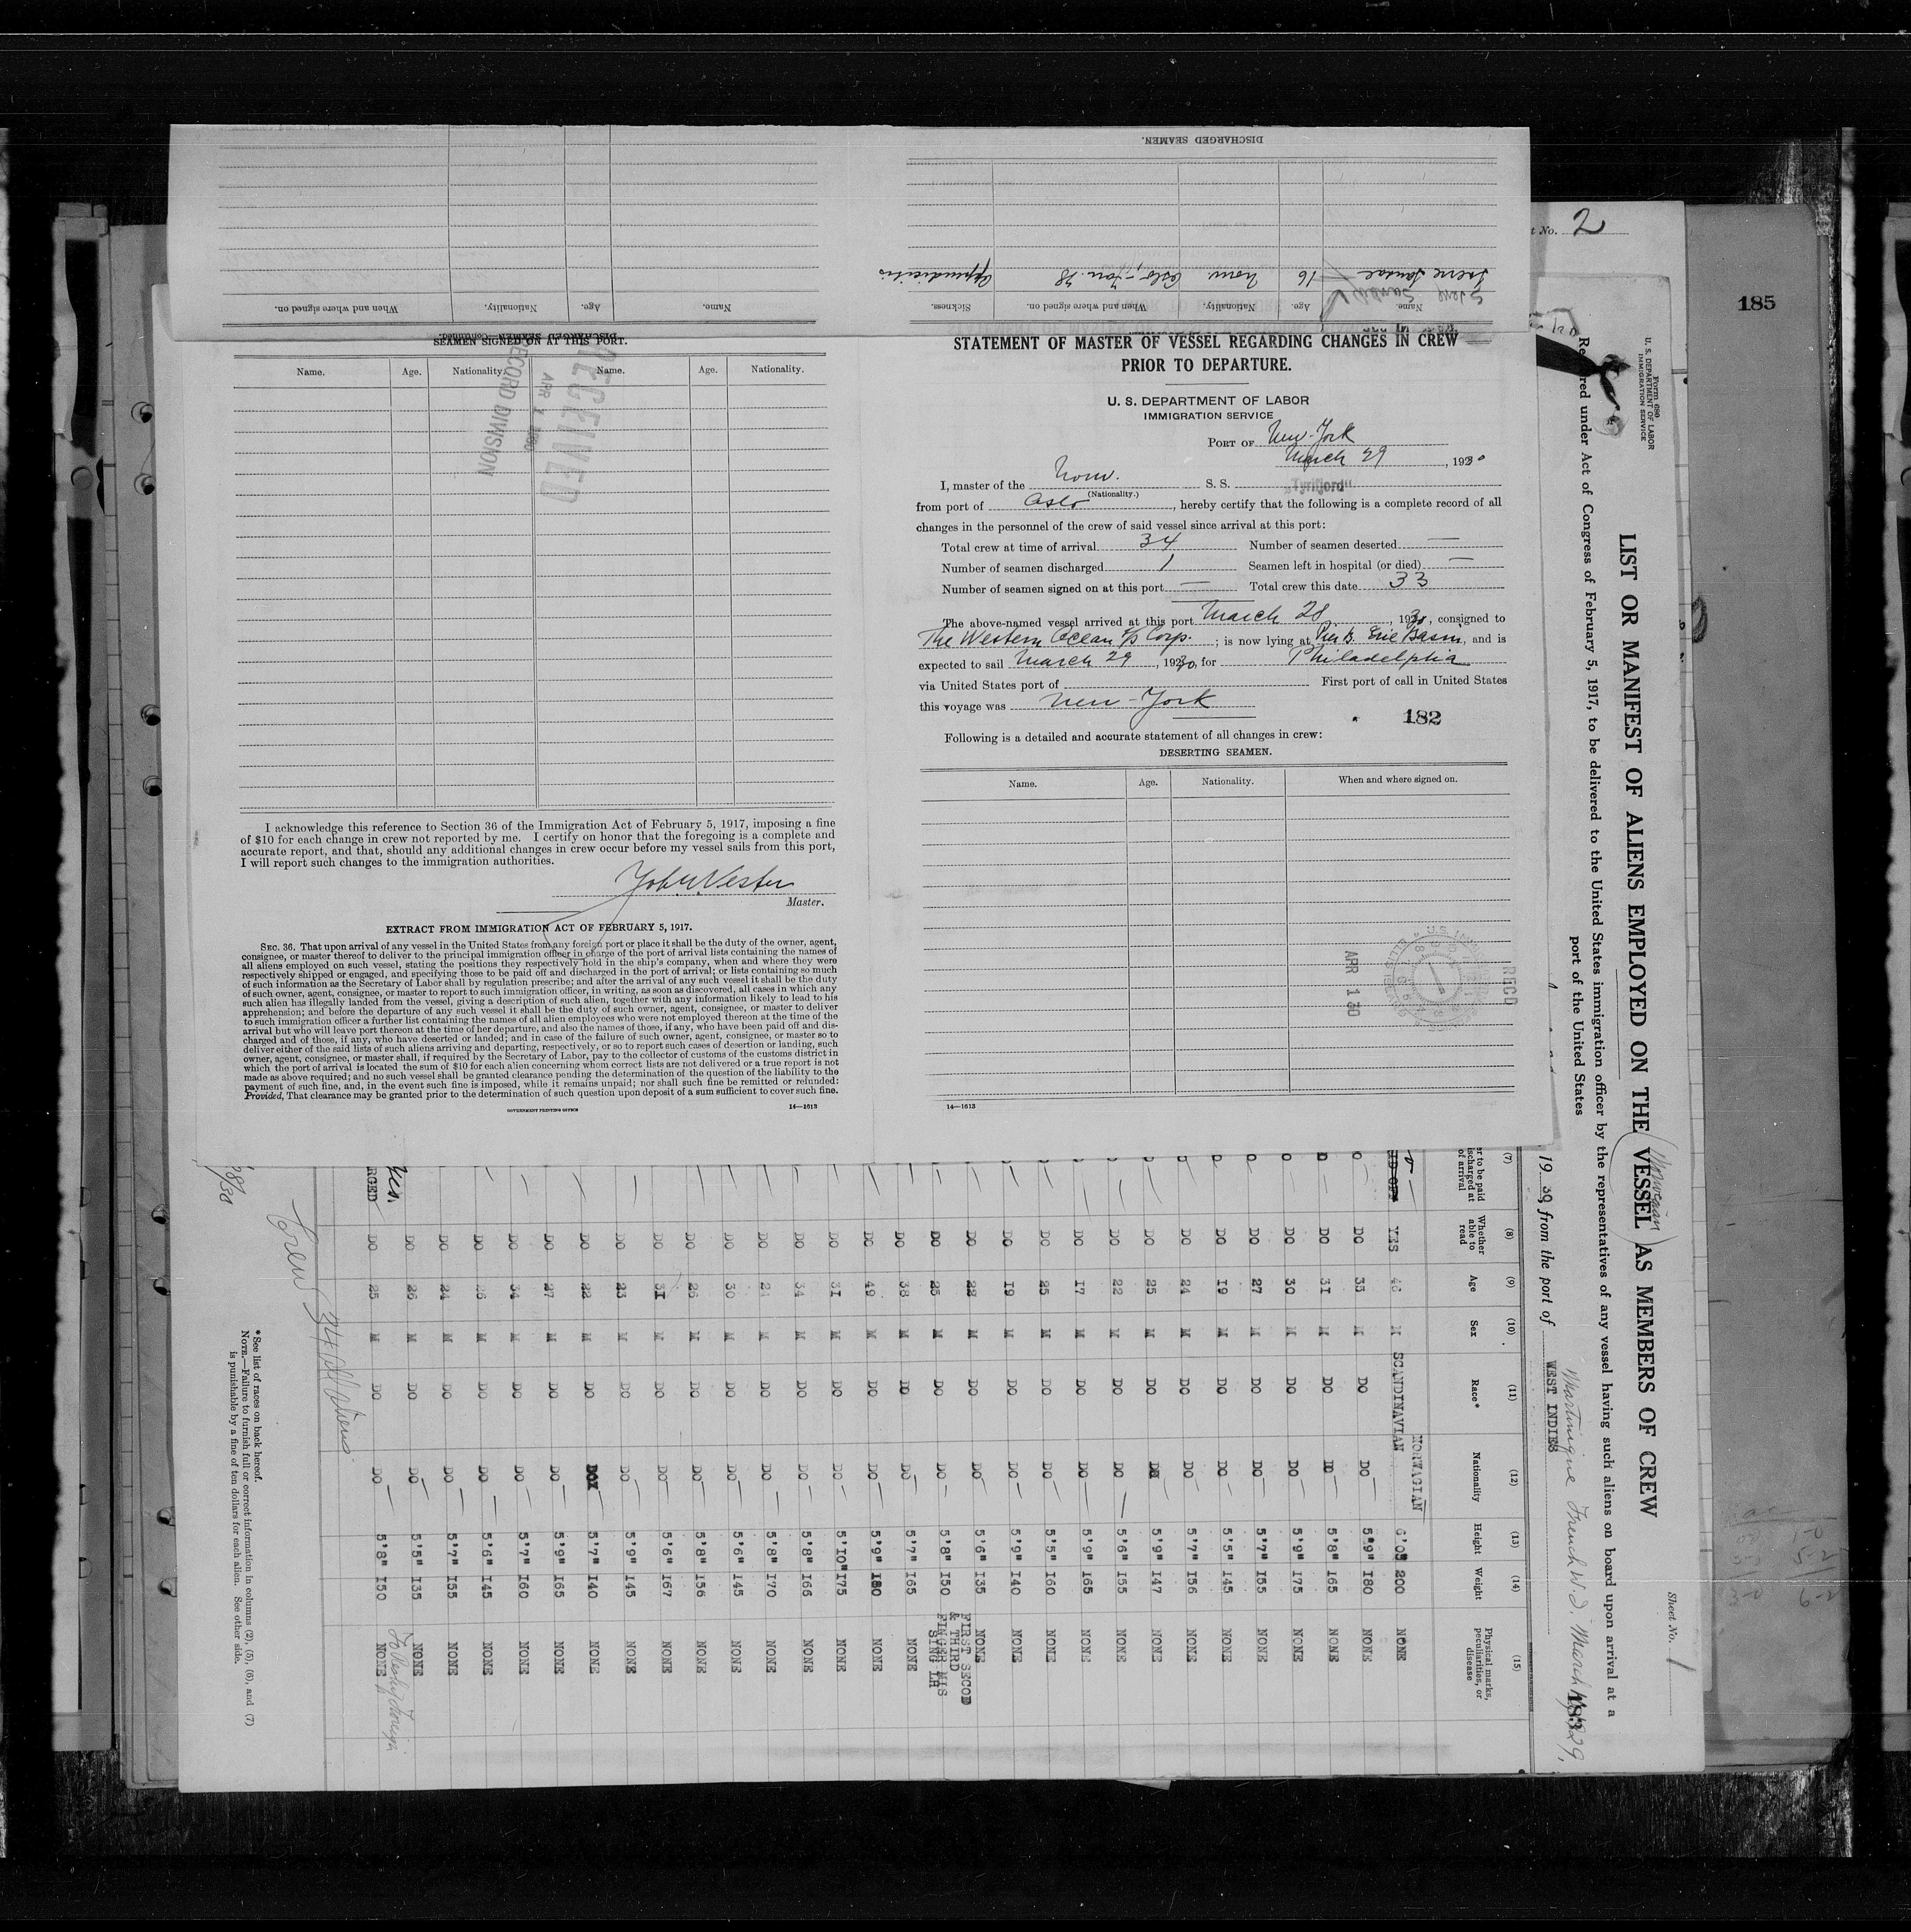 DISCHARGED SEAMEN.
Name. Age. Nationality. When and where signed on. Sickness.
16 Norw. Oslo - Jan. 28 Appendicitis
Name. Age. Nationality. When and where signed on.
DISCHARGED SEAMEN—Continued.
SEAMEN SIGNED ON AT THIS PORT.
Name. Age. Nationality. Name. Age. Nationality.
RECEIVED
APR 1 1930
RECORD DIVISION
I acknowledge this reference to Section 36 of the Immigration Act of February 5, 1917, imposing a fine
of $10 for each change in crew not reported by me. I certify on honor that the foregoing is a complete and
accurate report, and that, should any additional changes in crew occur before my vessel sails from this port,
I will report such changes to the immigration authorities.
Master.
EXTRACT FROM IMMIGRATION ACT OF FEBRUARY 5, 1917.
SEC. 36. That upon arrival of any vessel in the United States from any foreign port or place it shall be the duty of the owner, agent,
consignee, or master thereof to deliver to the principal immigration officer in charge of the port of arrival lists containing the names of
all aliens employed on such vessel, stating the positions they respectively hold in the ship's company, when and where they were
respectively shipped or engaged, and specifying those to be paid off and discharged in the port of arrival; or lists containing so much
of such information as the Secretary of Labor shall by regulation prescribe; and after the arrival of any such vessel it shall be the duty
of such owner, agent, consignee, or master to report to such immigration officer, in writing, as soon as discovered, all cases in which any
such alien has illegally landed from the vessel, giving a description of such alien, together with any information likely to lead to his
apprehension; and before the departure of any such vessel it shall be the duty of such owner, agent, consignee, or master to deliver
to such immigration officer a further list containing the names of all alien employees who were not employed thereon at the time of the
arrival but who will leave port thereon at the time of her departure, and also the names of those, if any, who have been paid off and dis-
charged and of those, if any, who have deserted or landed; and in case of the failure of such owner, agent, consignee, or master so to
deliver either of the said lists of such aliens arriving and departing, respectively, or so to report such cases of desertion or landing, such
owner, agent, consignee, or master shall, if required by the Secretary of Labor, pay to the collector of customs of the customs district in
which the port of arrival is located the sum of $10 for each alien concerning whom correct lists are not delivered or a true report is not
made as above required; and no such vessel shall be granted clearance pending the determination of the question of the liability to the
payment of such fine, and, in the event such fine is imposed, while it remains unpaid; nor shall such fine be remitted or refunded:
Provided, That clearance may be granted prior to the determination of such question upon deposit of a sum sufficient to cover such fine.
GOVERNMENT PRINTING OFFICE 14—1613
STATEMENT OF MASTER OF VESSEL REGARDING CHANGES IN CREW
PRIOR TO DEPARTURE.
U. S. DEPARTMENT OF LABOR
IMMIGRATION SERVICE
PORT OF New-York
March 29, 1930
I, master of the Norw. S. S. „Tyrifjord"
(Nationality.)
from port of Oslo, hereby certify that the following is a complete record of all
changes in the personnel of the crew of said vessel since arrival at this port:
Total crew at time of arrival 34 Number of seamen deserted —
Number of seamen discharged 1 Seamen left in hospital (or died) —
Number of seamen signed on at this port — Total crew this date 33
The above-named vessel arrived at this port March 28, 1930, consigned to
The Western Ocean S/S Corp.; is now lying at Pier B. Erie Basin, and is
expected to sail March 29, 1930, for Philadelphia
via United States port of First port of call in United States
this voyage was New-York
182
Following is a detailed and accurate statement of all changes in crew:
DESERTING SEAMEN.
Name. Age. Nationality. When and where signed on.
REC'D
APR 1 30
14—1613
t No. 2
185
Form 680
U. S. DEPARTMENT OF LABOR
IMMIGRATION SERVICE
Sheet No. 1
LIST OR MANIFEST OF ALIENS EMPLOYED ON THE VESSEL AS MEMBERS OF CREW
Norwegian
Required under Act of Congress of February 5, 1917, to be delivered to the United States immigration officer by the representatives of any vessel having such aliens on board upon arrival at a
port of the United States
19 30, from the port of Martinique French W.I. March
WEST INDIES
183
(7) (8) (9) (10) (11) (12) (13) (14) (15)
er to be paid
ischarged at
of arrival
Whether able to read
Age
Sex
Race*
Nationality
Height
Weight
Physical marks, peculiarities, or disease
YES 46 M SCANDINAVIAN NORWAGIAN 6'0" 200 NONE
DO 35 M DO DO 5'9" 180 NONE
DO 31 M DO DO 5'8" 165 NONE
DO 30 M DO DO 5'9" 175 NONE
DO 27 M DO DO 5'7" 155 NONE
DO 19 M DO DO 5'5" 145 NONE
DO 24 M DO DO 5'7" 156 NONE
DO 25 M DO DO 5'9" 147 NONE
DO 22 M DO DO 5'6" 155 NONE
DO 17 M DO DO 5'9" 165 NONE
DO 25 M DO DO 5'5" 160 NONE
DO 19 M DO DO 5'9" 140 NONE
DO 22 M DO DO 5'6" 135 NONE
DO 25 M DO DO 5'8" 150 FIRST SECOD & THIRD FINGER MIS SING LH
DO 38 M DO DO 5'7" 165 NONE
DO 49 M DO DO 5'9" 180 NONE
DO 31 M DO DO 5'10" 175 NONE
DO 34 M DO DO 5'8" 166 NONE
DO 21 M DO DO 5'8" 170 NONE
DO 30 M DO DO 5'6" 145 NONE
DO 26 M DO DO 5'8" 156 NONE
DO 31 M DO DO 5'6" 167 NONE
DO 23 M DO DO 5'9" 145 NONE
DO 22 M DO DO 5'7" 140 NONE
DO 27 M DO DO 5'9" 165 NONE
DO 34 M DO DO 5'7" 160 NONE
DO 26 M DO DO 5'6" 145 NONE
DO 24 M DO DO 5'7" 155 NONE
yes. DO 26 M DO DO 5'5" 135 NONE
RGED DO 25 M DO DO 5'8" 150 NONE
Crew 34 all Aliens
*See list of races on back hereof.
NOTE.—Failure to furnish full or correct information in columns (2), (5), (6), and (7)
is punishable by a fine of ten dollars for each alien. See other side.